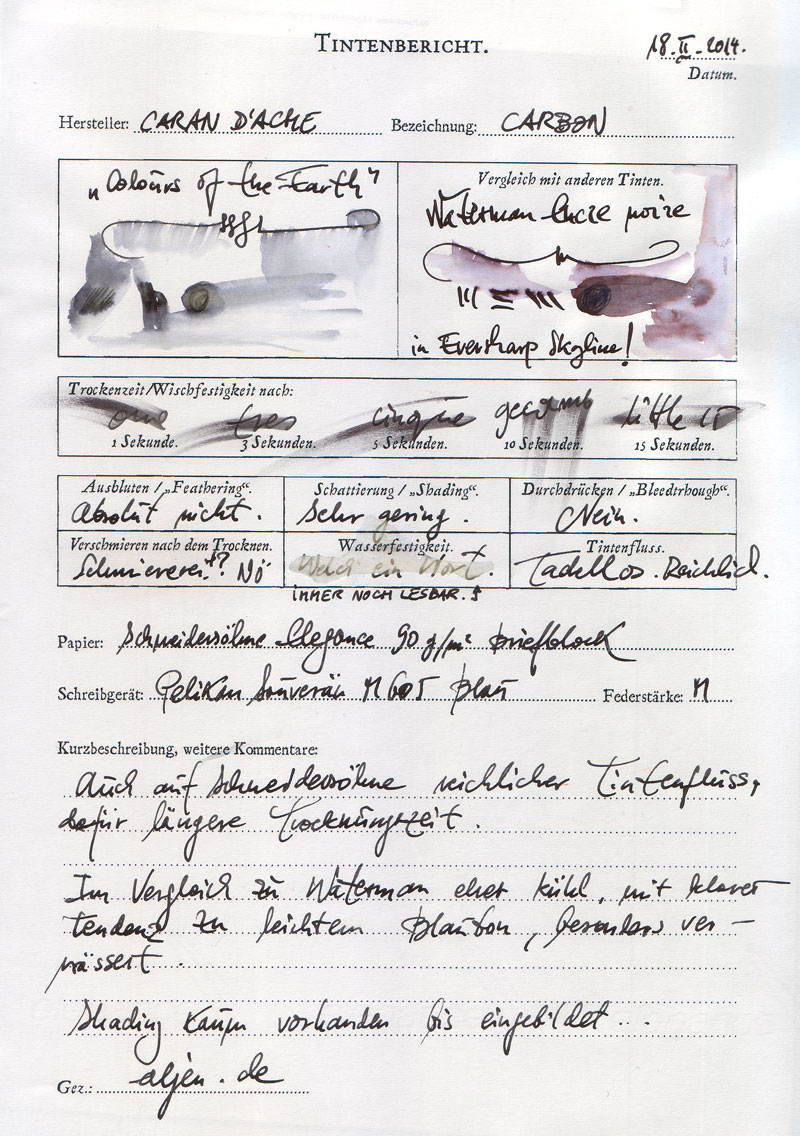 TINTENBERICHT.
18. II. 2014.
Datum.
Hersteller: CARAN D'ACHE Bezeichnung: CARBON
„Colours of the Earth"
Vergleich mit anderen Tinten.
Waterman encre noire
in Eversharp Skyline!
Trockenzeit/Wischfestigkeit nach:
one tres cinque little 15
1 Sekunde. 3 Sekunden. 5 Sekunden. 10 Sekunden. 15 Sekunden.
Ausbluten / „Feathering“. Schattierung / „Shading“. Durchdrücken / „Bleedtrhough“.
Absolut nicht. Sehr gering. Nein.
Verschmieren nach dem Trocknen. Wasserfestigkeit. Tintenfluss.
Schmiererei? Nö Welch ein Wort. Tadellos. Reichlich.
IMMER NOCH LESBAR.
Papier: Schneidersöhne Elegance 90 g/m² Briefblock
Schreibgerät: Pelikan Souverän M605 Blau Federstärke: M
Kurzbeschreibung, weitere Kommentare:
Auch auf Schneidersöhne reichlicher Tintenfluss,
dafür längere Trocknungszeit.
Im Vergleich zu Waterman eher kühl, mit klarer
Tendenz zu leichtem Blauton, besonders ver-
wässert.
Shading kaum vorhanden bis eingebildet...
Gez.: aljen.de